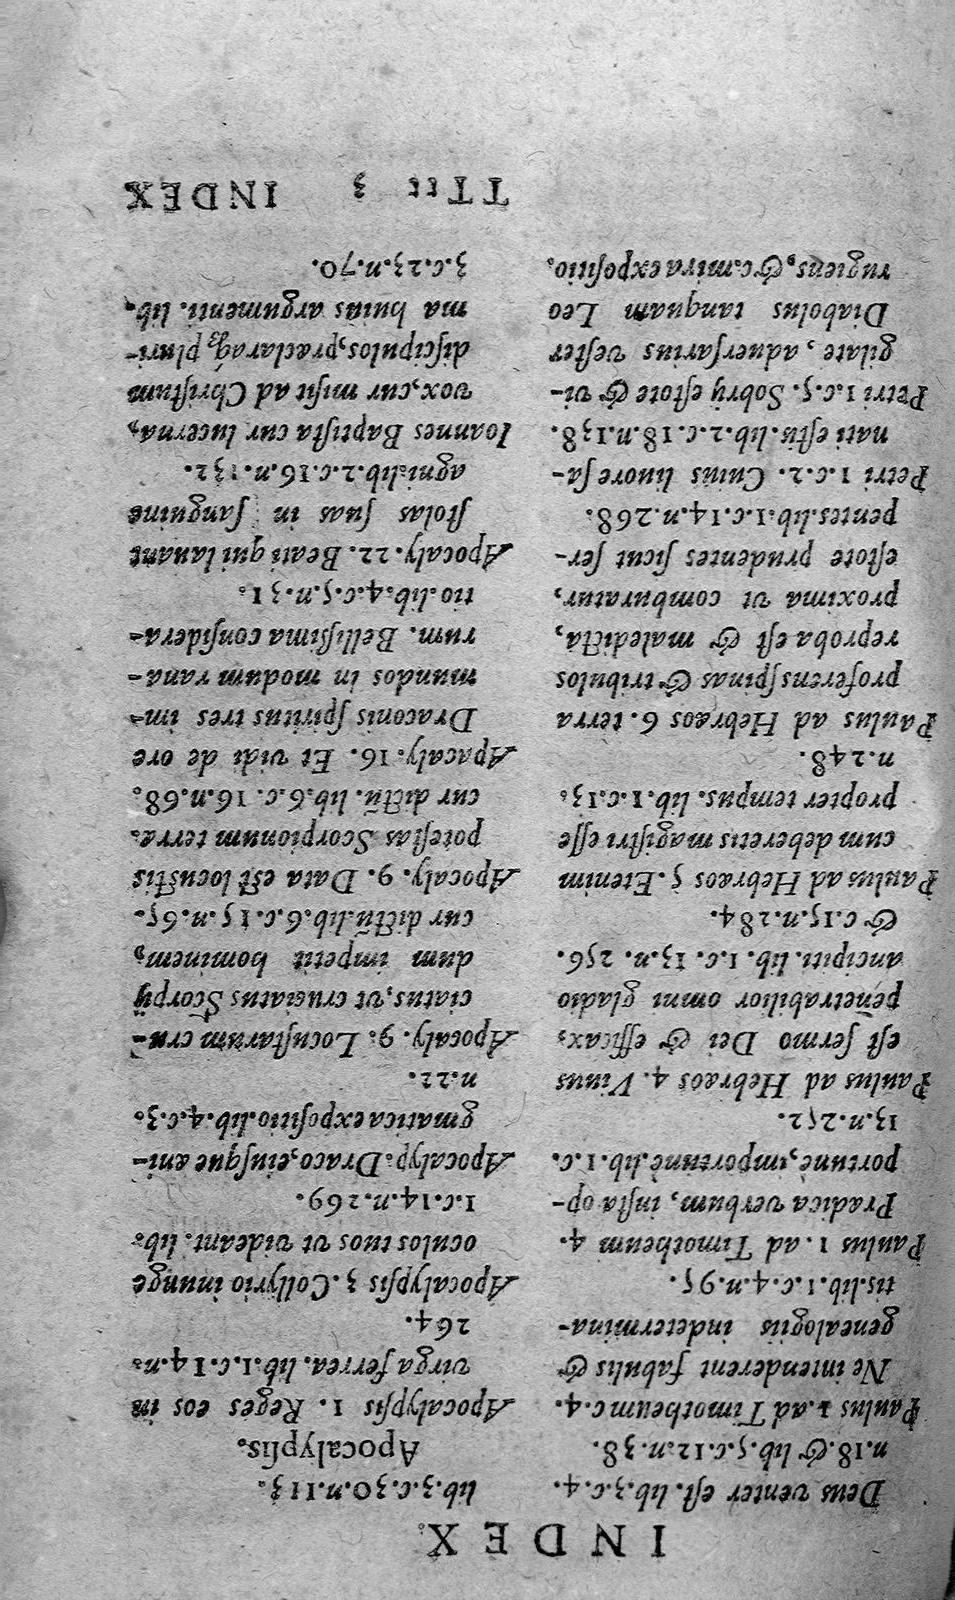 INDEX.
Deus venter eſt. lib.3.c.4.
n.18.& lib.5.c.12.n.38.
Paulus 1.ad Timotheum c.4.
Ne intenderent fabulis &
genealogiis indetermina-
tis.lib.1.c.4.n.95.
Paulus 1. ad Timotheum 4.
Prædica verbum, inſta op-
portunè, importunè.lib.1.c.
13.n.252.
Paulus ad Hebræos 4. Viuus
eſt ſermo Dei & efficax,
penetrabilior omni gladio
ancipiti. lib. 1.c. 13.n. 256.
& c.15.n.284.
Paulus ad Hebræos 5. Etenim
cum deberetis magiſtri eſſe
propter tempus. lib.1.c.13.
n.248.
Paulus ad Hebræos 6. terra
proferens ſpinas & tribulos
reproba eſt & maledicta,
proxima vt comburatur.
eſtote prudentes ſicut ſer-
pentes.lib.1.c.14.n.268.
Petri 1.c.2. Cuius liuore ſa-
nati eſtis.lib.2.c.18.n.138.
Petri 1.c.5. Sobrij eſtote & vi-
gilate, aduerſarius veſter
Diabolus tanquam Leo
rugiens, &c.mira expoſitio.
lib.3.c.30.n.113.
Apocalypſis.
Apocalypſis 1. Reges eos in
virga ferrea. lib.1.c.14.n.
264.
Apocalypſis 3. Collyrio inunge
oculos tuos vt videant. lib.
1.c.14.n.269.
Apocalyp. Draco, eiuſque æni-
gmatica expoſitio.lib.4.c.3.
n.22.
Apocaly. 9. Locuſtarum cru-
ciatus, vt cruciatus Scorpij
dum impetit hominem,
cur dictū.lib.6.c.15.n.65.
Apocaly. 9. Data eſt locuſtis
poteſtas Scorpionum terræ.
cur dictū. lib.6.c. 16.n.68.
Apacaly. 16. Et vidi de ore
Draconis ſpiritus tres im-
mundos in modum rana-
rum. Belliſſima conſidera-
tio.lib.4.c.5.n.31.
Apocaly. 22. Beati qui lauant
ſtolas ſuas in ſanguine
agni.lib.2.c.16.n.132.
Ioannes Baptiſta cur lucerna,
vox,cur miſit ad Chriſtum
diſcipulos,præclara, & pluri-
ma huius argumenti. lib.
3.c.23.n.70.
TTtt 3 INDEX